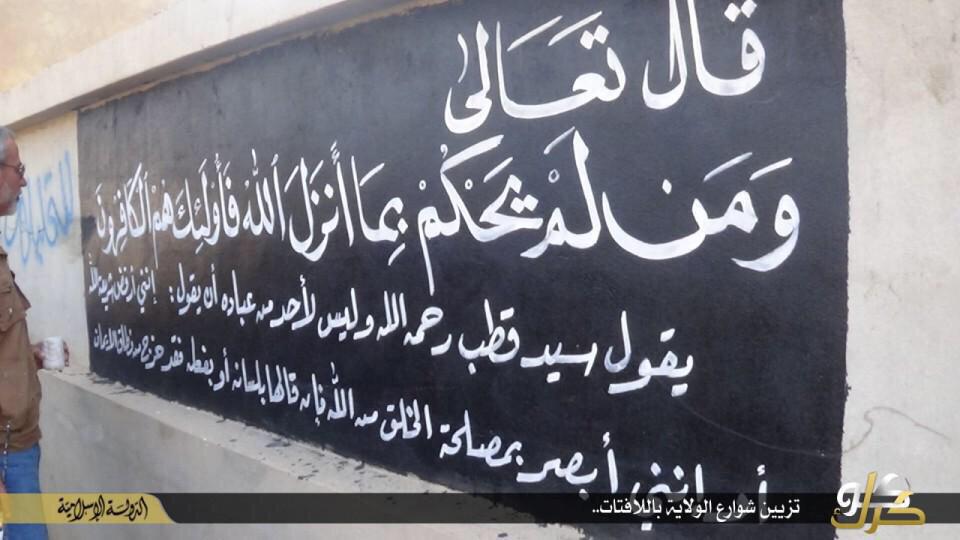 قال تعالى
وَمَن لَمْ يَحْكُمْ بِمَا أَنزَلَ اللهُ فَأُولَئِكَ هُمُ الكَافِرُونَ
يقول سيد قطب رحمه الله وليس لأحد من عباده أن يقول: إنني أرفض شريعة الله
أو إنني أبصر بمصلحة الخلق من الله فإنه قالها بلسانه أو بفعله فقد خرج من نطاق الإيمان
تزيين شوارع الولاية باللافتات..
الدولة الإسلامية